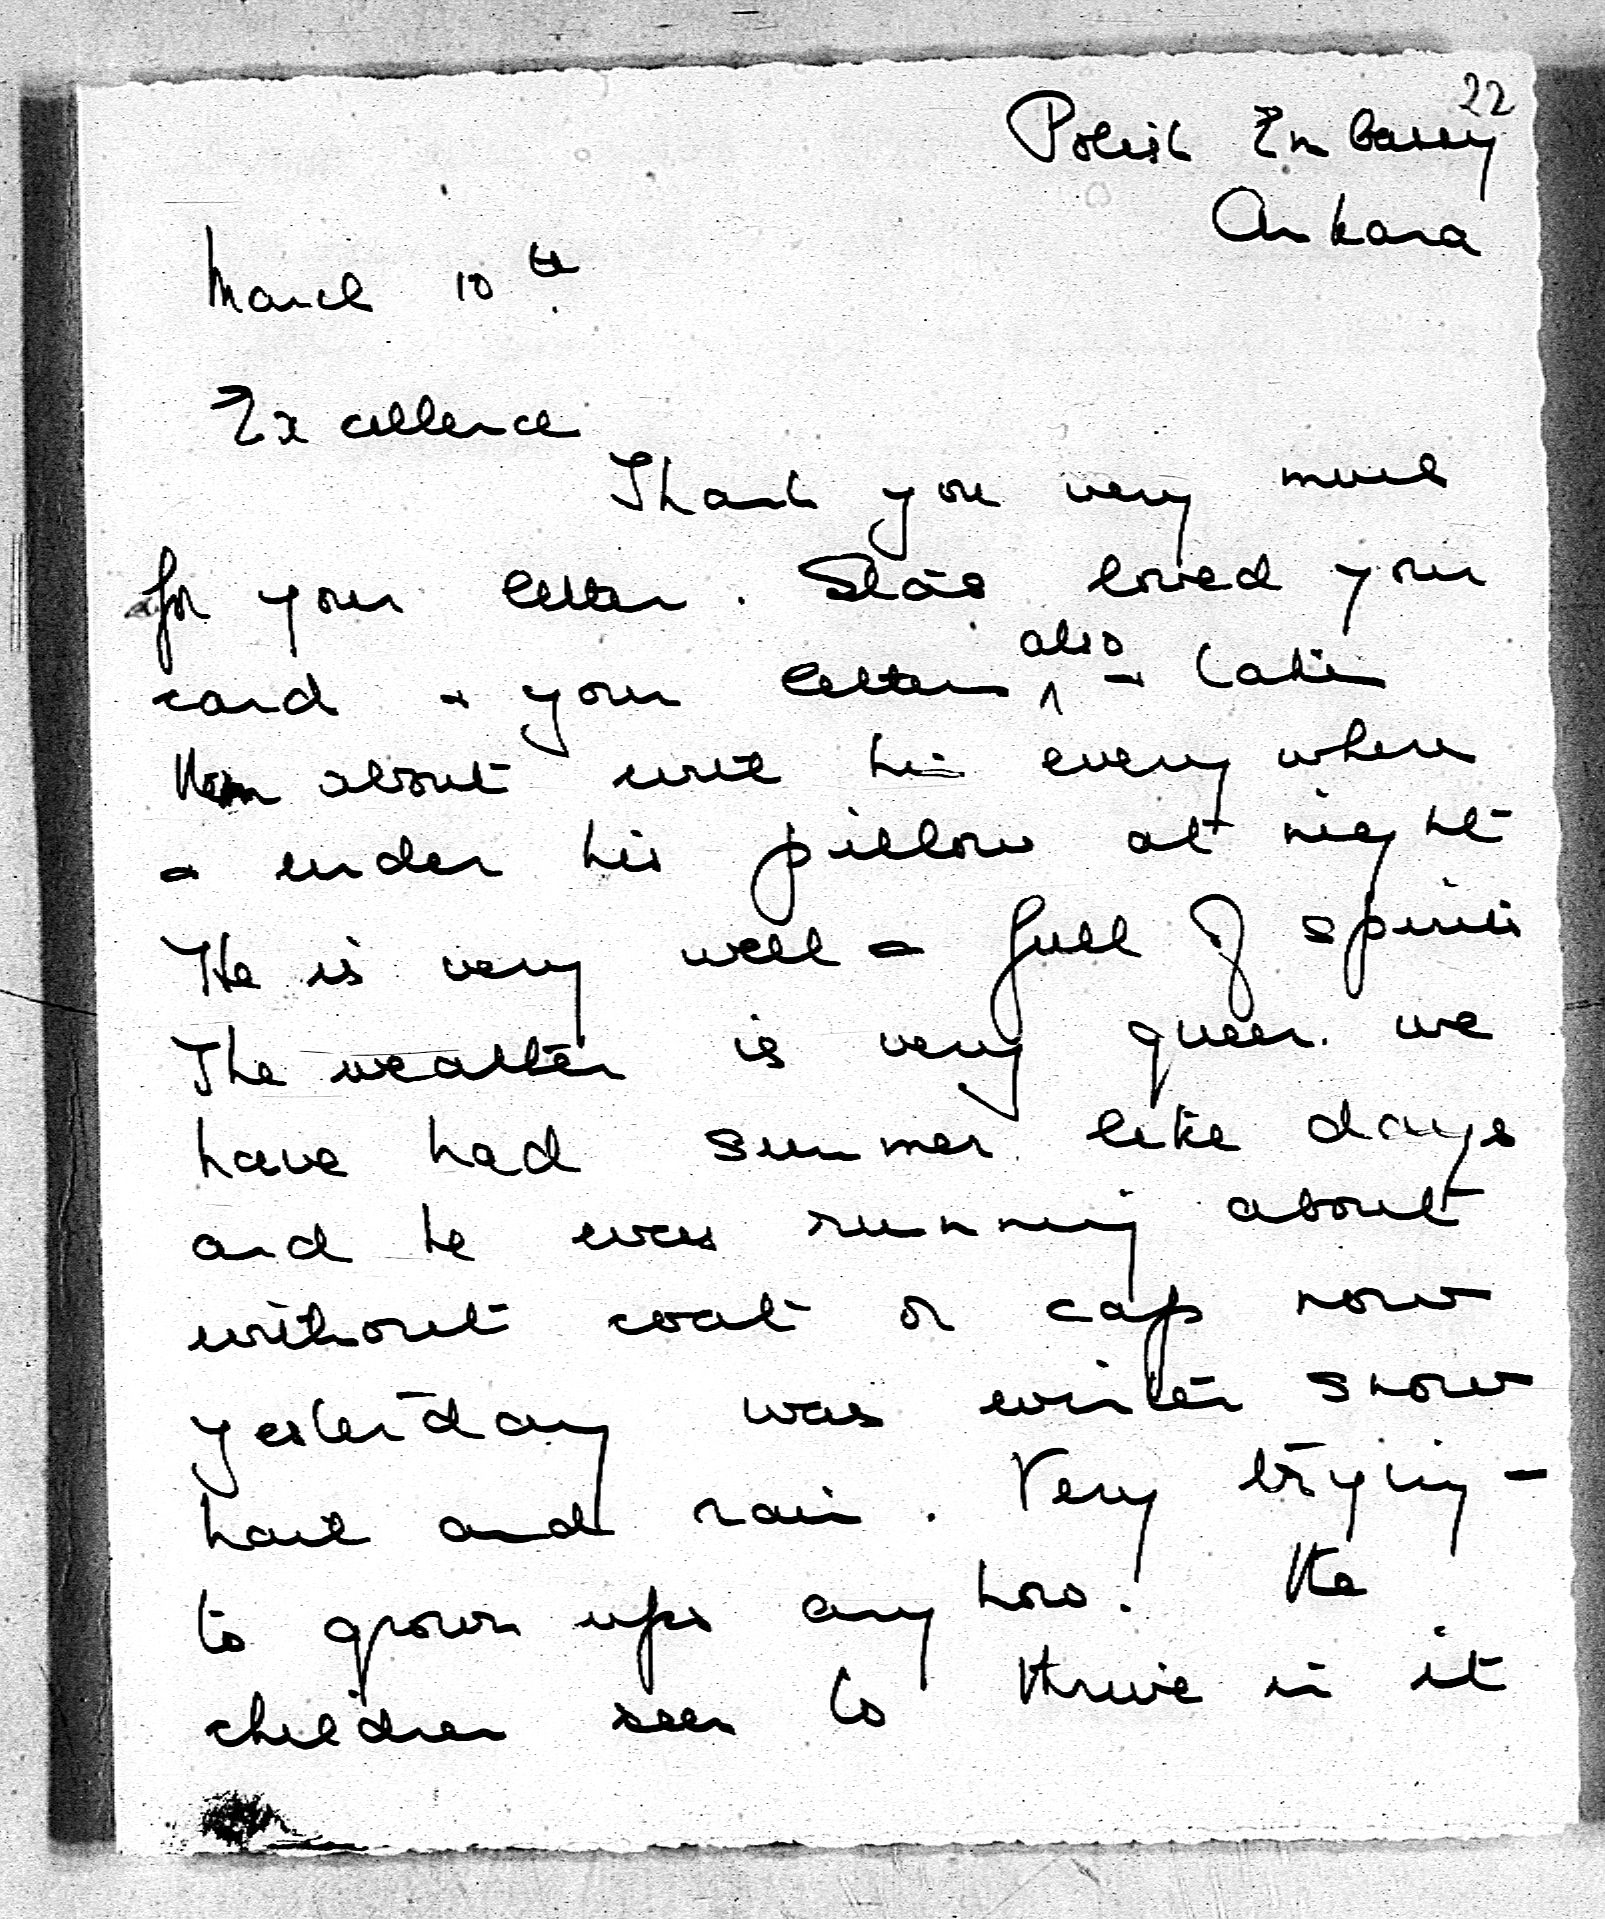 22
Polish Embassy
Ankara
March 10th.
Excellence
Thank you very much
for your letter. Staś loved your
card & your letters also & takes
them about with him every where
& under his pillow at night
He is very well & full of spirits
The weather is very queer. we
have had summer like days
and he was running about
without coat or cap now
yesterday was winter snow
hail and rain. Very trying -
to grown ups any how! the
children seem to thrive in it